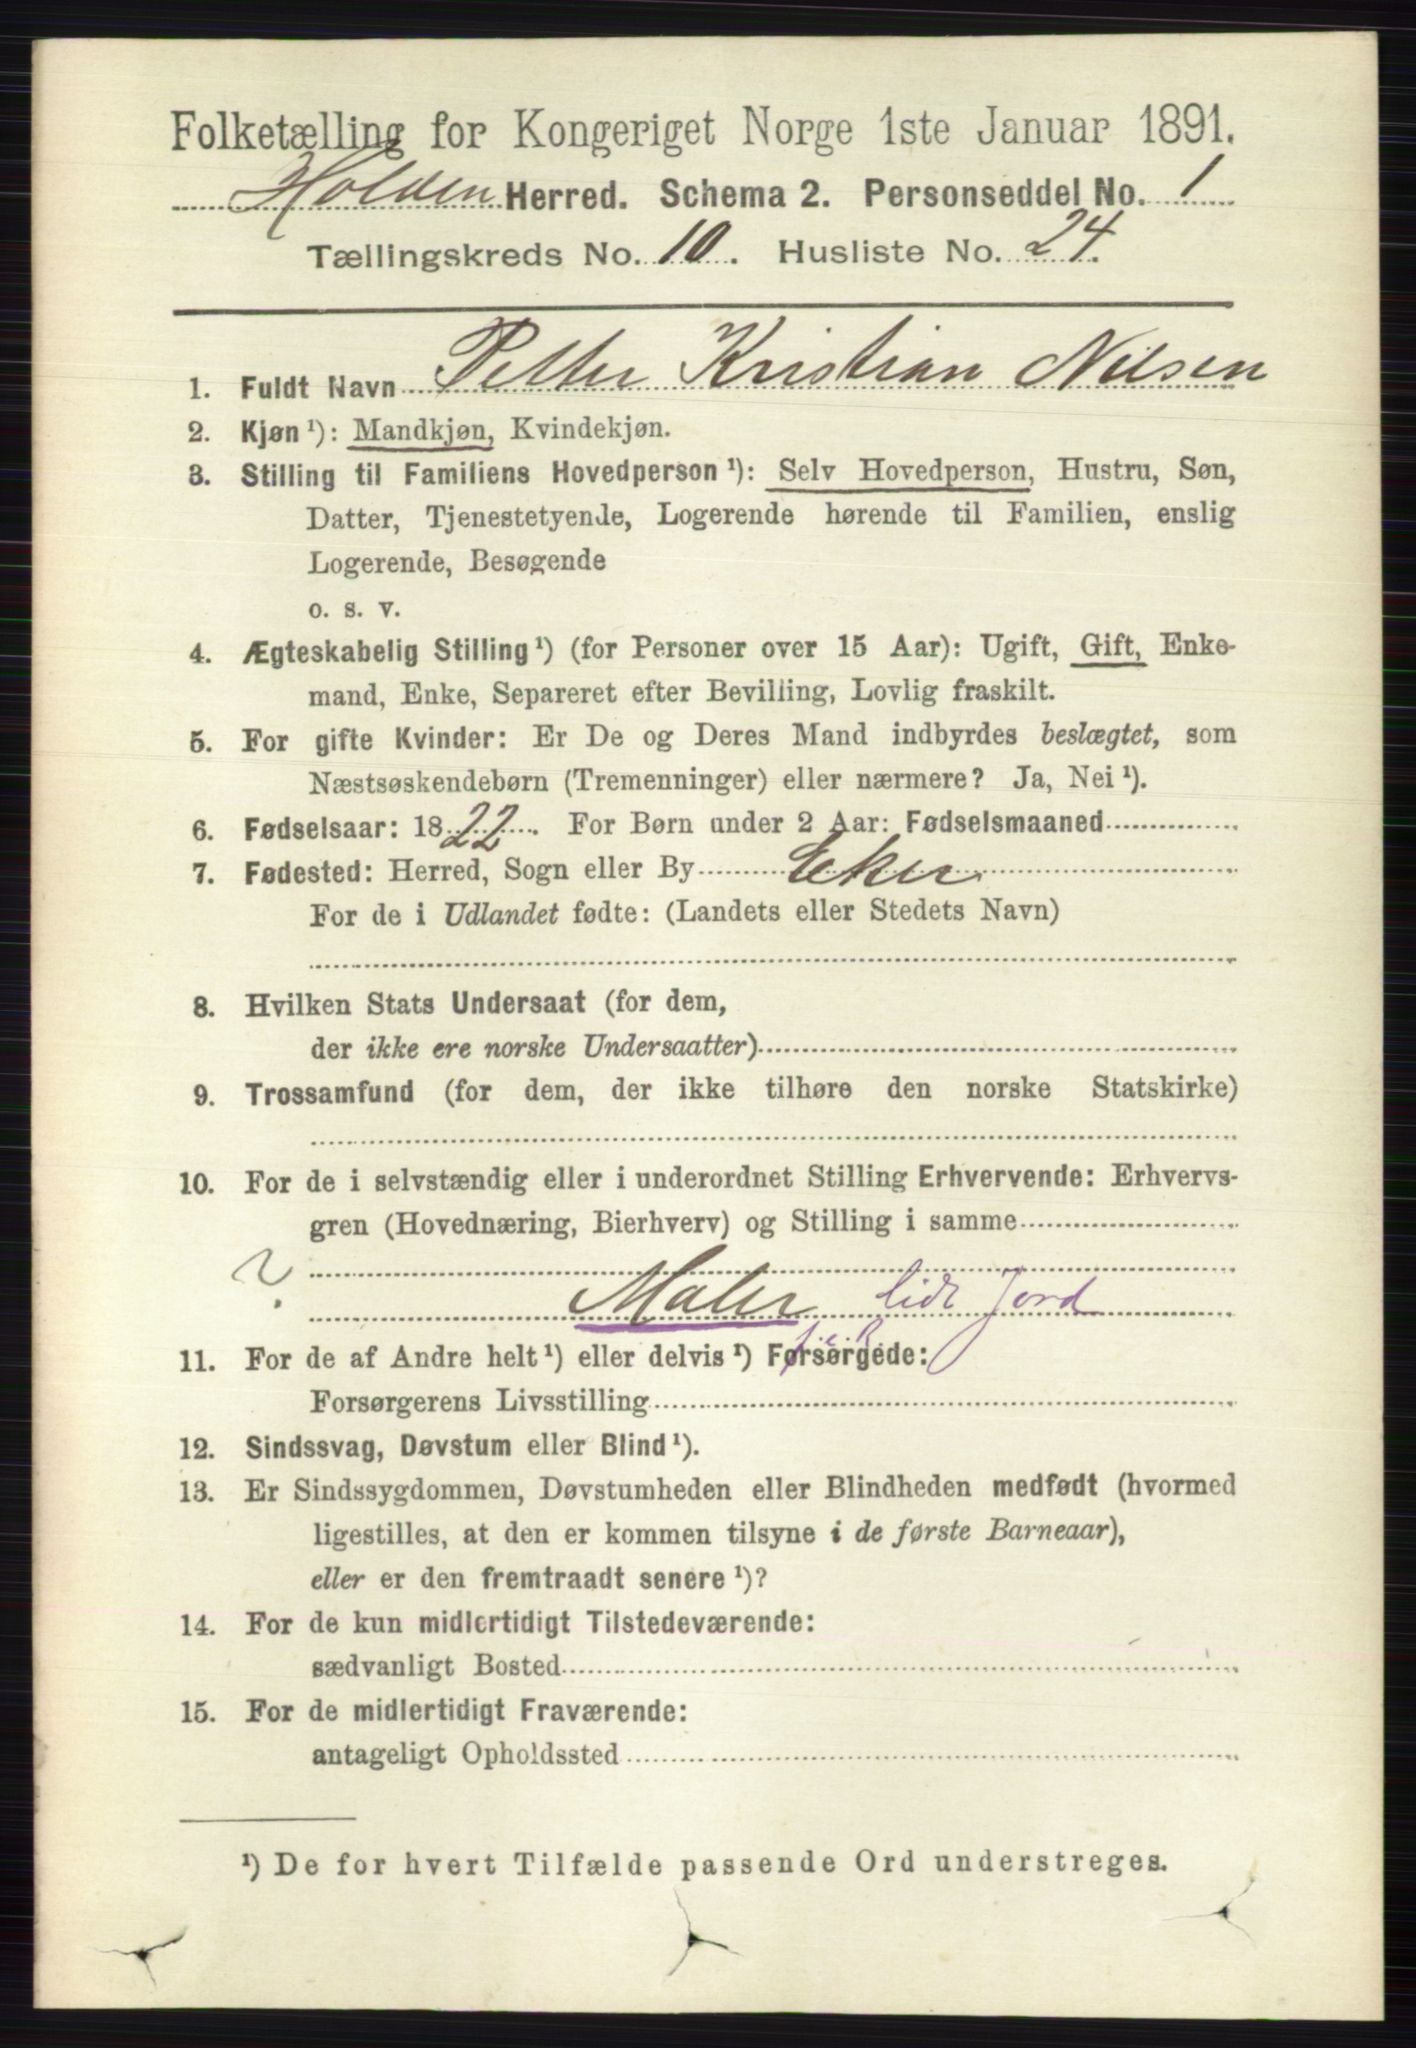 Folketælling for Kongeriget Norge 1ste Januar 1891.
Holden Herred. Schema 2. Personseddel No. 1
Tællingskreds No. 10. Husliste No. 24.
1. Fuldt Navn Petter Kristian Nilsen
2. Kjøn ¹): Mandkjøn, Kvindekjøn.
3. Stilling til Familiens Hovedperson ¹): Selv Hovedperson, Hustru, Søn,
Datter, Tjenestetyende, Logerende hørende til Familien, enslig
Logerende, Besøgende
o. s. v.
4. Ægteskabelig Stilling ¹) (for Personer over 15 Aar): Ugift, Gift, Enke-
mand, Enke, Separeret efter Bevilling, Lovlig fraskilt.
5. For gifte Kvinder: Er De og Deres Mand indbyrdes beslægtet, som
Næstsøskendebørn (Tremenninger) eller nærmere? Ja, Nei ¹).
6. Fødselsaar: 1822. For Børn under 2 Aar: Fødselsmaaned
7. Fødested: Herred, Sogn eller By Eker
For de i Udlandet fødte: (Landets eller Stedets Navn)
8. Hvilken Stats Undersaat (for dem,
der ikke ere norske Undersaatter)
9. Trossamfund (for dem, der ikke tilhøre den norske Statskirke)
10. For de i selvstændig eller i underordnet Stilling Erhvervende: Erhvervs-
gren (Hovednæring, Bierhverv) og Stilling i samme
?
Maler lidt Jord
11. For de af Andre helt ¹) eller delvis ¹) Forsørgede:
Forsørgerens Livsstilling
12. Sindssvag, Døvstum eller Blind ¹).
13. Er Sindssygdommen, Døvstumheden eller Blindheden medfødt (hvormed
ligestilles, at den er kommen tilsyne i de første Barneaar),
eller er den fremtraadt senere ¹)?
14. For de kun midlertidigt Tilstedeværende:
sædvanligt Bosted
15. For de midlertidigt Fraværende:
antageligt Opholdssted
¹) De for hvert Tilfælde passende Ord understreges.